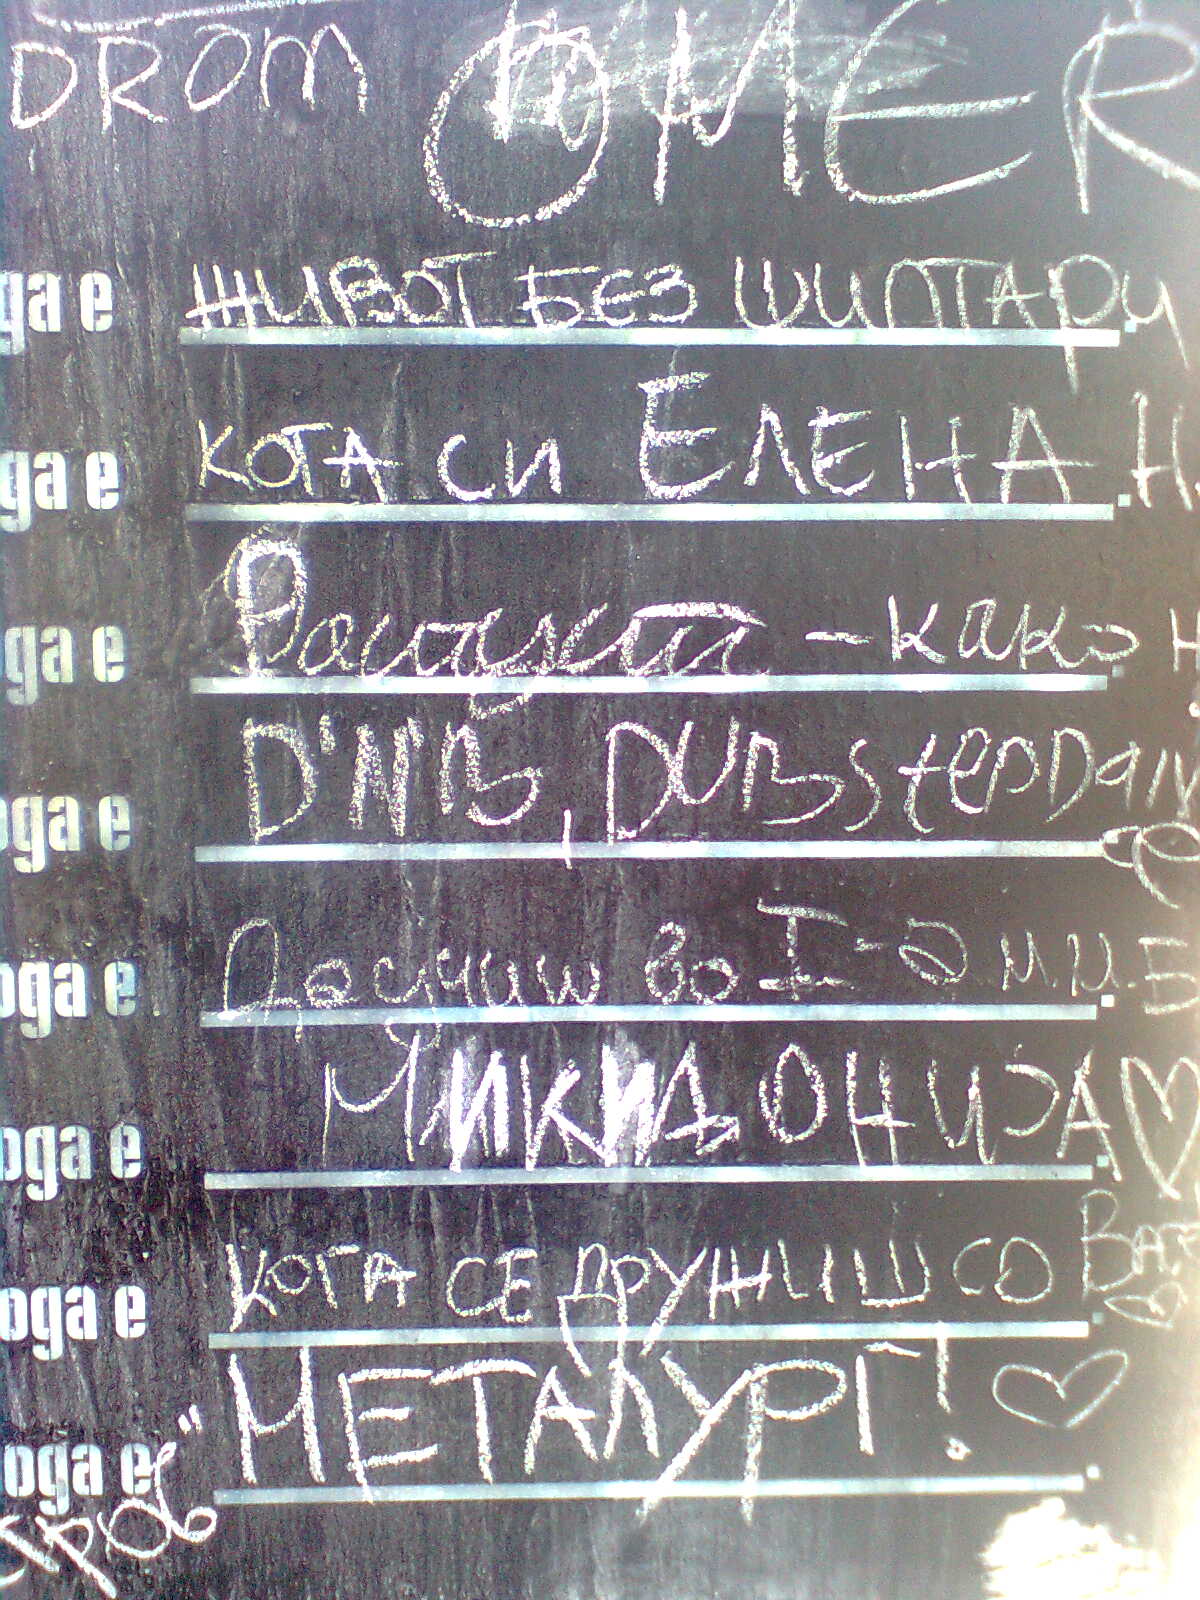 DROM OMER
ga e ЖИВОТ БЕЗ ШИПТАРИ
ga e КОГА СИ ЕЛЕНА Н.
ga e - како
oga e D'N'B, DUBstep
oga e Да учиш во I-2 м.и.
oga e МИКИДОНИЈА
oga e КОГА СЕ ДРУЖИШ СО
oga e "МЕТАЛУРГ"!